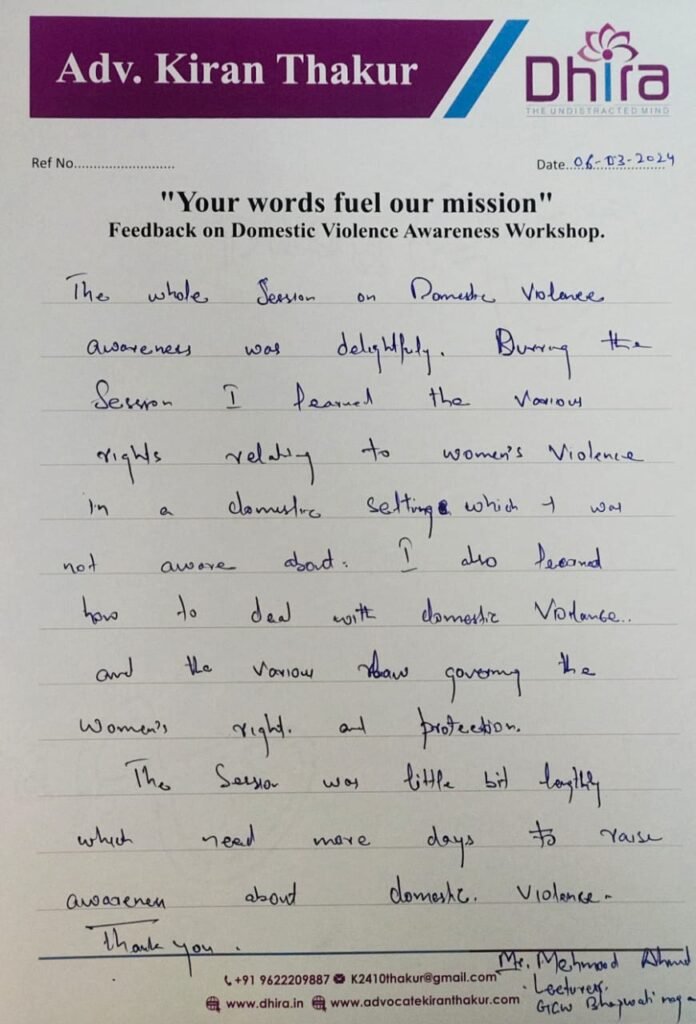 Adv. Kiran Thakur
Dhira
THE UNDISTRACTED MIND
Ref No..........................
Date..06-03-2024
"Your words fuel our mission"
Feedback on Domestic Violence Awareness Workshop.
The whole Session on Domestic Violence
awareness was delightfuly. During the
Session I learned the various
rights relating to women's Violence
in a domestic setting which I was
not aware about. I also learned
how to deal with domestic Violence..
and the various law governing the
women's right. and protection.
The Session was little bit lengthly
which need more days to raise
awareness about domestic. violence.
Thank you.
Mr. Mehmood Ahmad
Lecturer.
GCW Bhagwati nagar
+91 9622209887 K2410thakur@gmail.com
www.dhira.in www.advocatekiranthakur.com